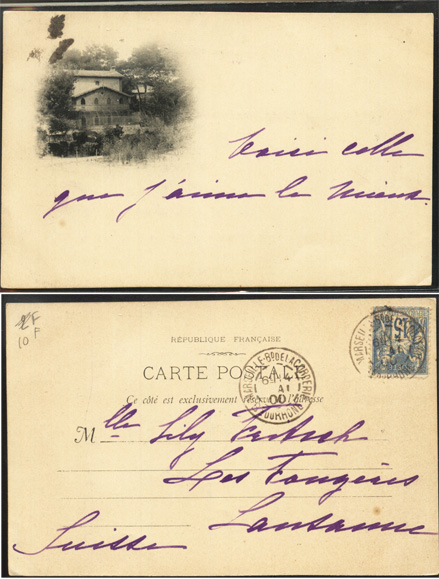 Voici celle
que j'aime le mieux.
2F
10 F
RÉPUBLIQUE FRANÇAISE
CARTE POSTALE
Ce côté est exclusivement réservé à l'adresse
Mlle Lily
Les Fougères
Lausanne
Suisse
MARSEILLE-Bd DE LA CORDERIE
00
BCHES DU RHONE
MARSEILLE
15